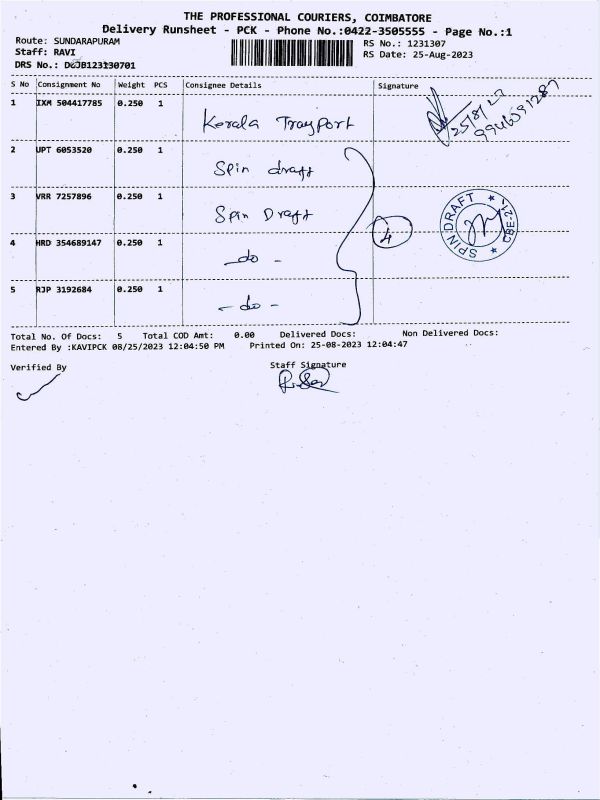 THE PROFESSIONAL COURIERS, COIMBATORE
Delivery Runsheet - PCK - Phone No.:0422-3505555 - Page No.:1
Route: SUNDARAPURAM
RS No.: 1231307
Staff: RAVI
RS Date: 25-Aug-2023
DRS No.:
S No Consignment No Weight PCS Consignee Details Signature
1 IXM 504417785 0.250 1 Kerala Trayport
25/8/23
2 UPT 6053520 0.250 1 Spin draft
3 VRR 7257896 0.250 1 Spin Draft
4
SPIN DRAFT
4 HRD 354689147 0.250 1 -do-
5 RJP 3192684 0.250 1 -do-
Total No. Of Docs: 5 Total COD Amt: 0.00 Delivered Docs: Non Delivered Docs:
Entered By :KAVIPCK 08/25/2023 12:04:50 PM Printed On: 25-08-2023 12:04:47
Verified By Staff Signature